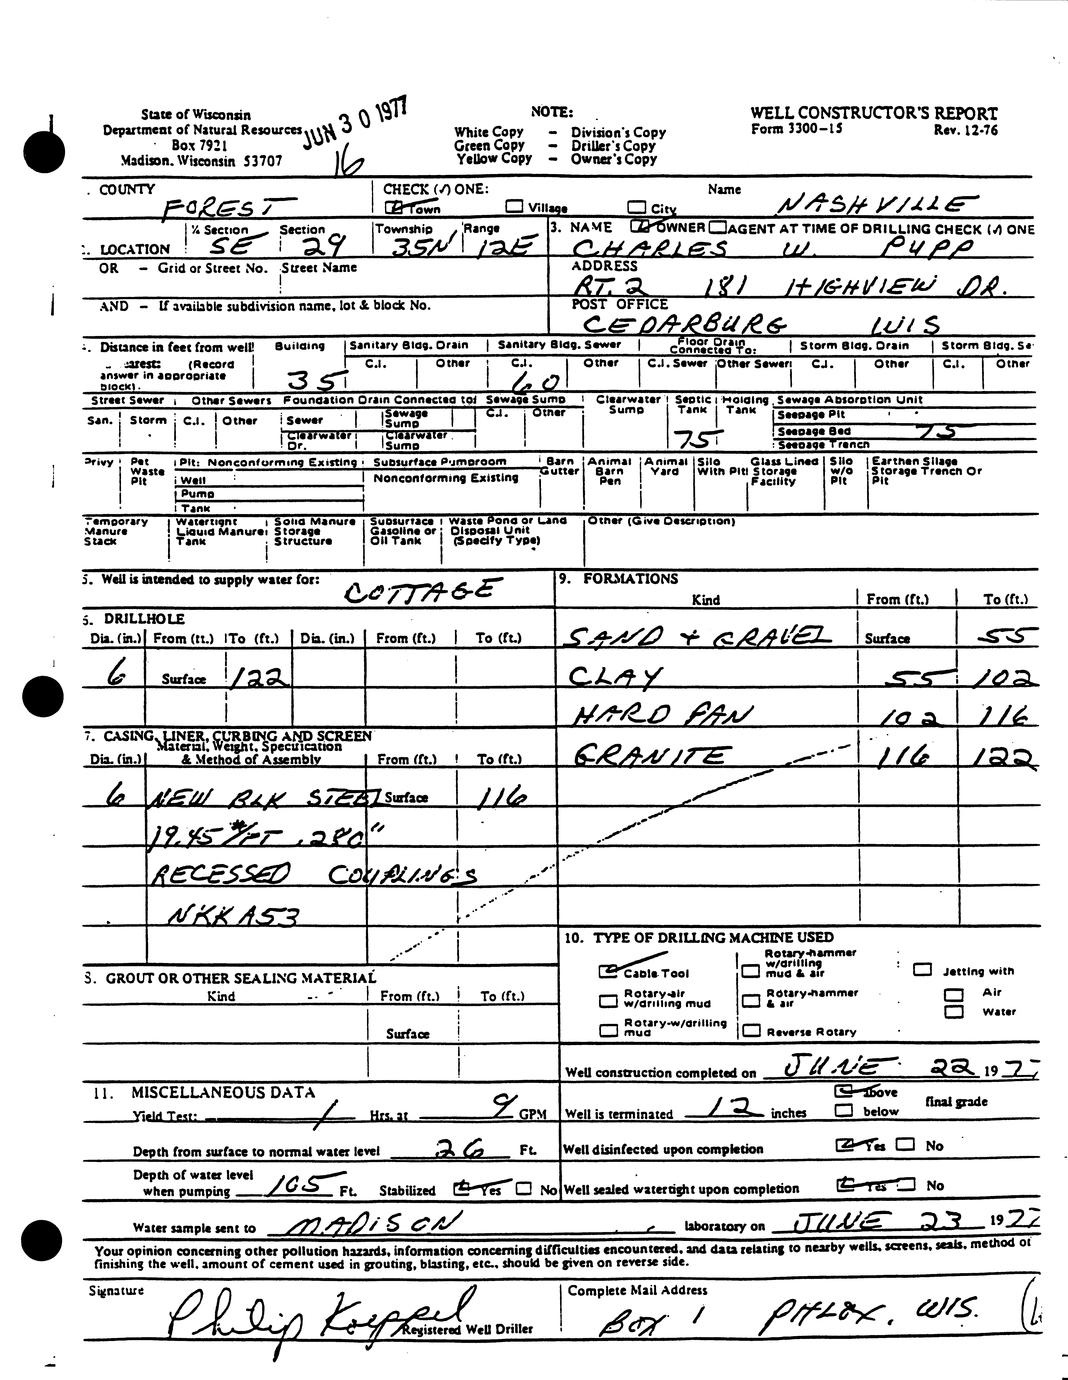 State of Wisconsin
Department of Natural Resources
Box 7921
Madison, Wisconsin 53707
JUN 30 1977
16
NOTE:
White Copy – Division's Copy
Green Copy – Driller's Copy
Yellow Copy – Owner's Copy
WELL CONSTRUCTOR'S REPORT
Form 3300-15 Rev. 12-76
COUNTY FOREST
CHECK (✓) ONE: Name
Town Village City NASHVILLE
LOCATION ¼ Section SE Section 29 Township 35N Range 12E
3. NAME OWNER AGENT AT TIME OF DRILLING CHECK (✓) ONE
CHARLES W. PUPP
OR – Grid or Street No. Street Name
ADDRESS
RT. 2 181 HIGHVIEW DR.
AND – If available subdivision name, lot & block No.
POST OFFICE
CEDARBURG WIS
Distance in feet from well
(Record
answer in appropriate
block).
Building 35
Sanitary Bldg. Drain C.I. Other
Sanitary Bldg. Sewer C.I. 60 Other
Floor Drain Connected To: C.I. Sewer Other Sewer
Storm Bldg. Drain C.I. Other
Storm Bldg. Se C.I. Other
Street Sewer San. Storm
Other Sewers C.I. Other
Foundation Drain Connected to: Sewer Clearwater Dr. Sewage Sump Clearwater Sump
Sewage Sump C.I. Other
Clearwater Sump
Septic Tank 75
Holding Tank
Sewage Absorption Unit
Seepage Pit
Seepage Bed 75
Seepage Trench
Privy
Pet Waste Pit
Pit: Nonconforming Existing
Well
Pump
Tank
Subsurface Pumproom
Nonconforming Existing
Barn Gutter
Animal Barn Pen
Animal Yard
Silo With Pit
Glass Lined Storage Facility
Silo w/o Pit
Earthen Silage Storage Trench Or Pit
Temporary Manure Stack
Watertight Liquid Manure Tank
Solid Manure Storage Structure
Subsurface Gasoline or Oil Tank
Waste Pond or Land Disposal Unit (Specify Type)
Other (Give Description)
5. Well is intended to supply water for: COTTAGE
6. DRILLHOLE
Dia. (in.) From (ft.) To (ft.) Dia. (in.) From (ft.) To (ft.)
6 Surface 122
7. CASING, LINER, CURBING AND SCREEN
Material, Weight, Specification
Dia. (in.) & Method of Assembly From (ft.) To (ft.)
6 NEW BLK STEEL Surface 116
19.45 #/FT .280"
RECESSED COUPLINGS
NKK A53
8. GROUT OR OTHER SEALING MATERIAL
Kind From (ft.) To (ft.)
Surface
9. FORMATIONS
Kind From (ft.) To (ft.)
SAND + GRAVEL Surface 55
CLAY 55 102
HARD PAN 102 116
GRANITE 116 122
10. TYPE OF DRILLING MACHINE USED
Cable Tool
Rotary-air w/drilling mud
Rotary-w/drilling mud
Rotary-hammer w/drilling mud & air
Rotary-hammer & air
Reverse Rotary
Jetting with
Air
Water
Well construction completed on JUNE 22 1977
11. MISCELLANEOUS DATA
Yield Test: 1 Hrs. at 9 GPM
Well is terminated 12 inches above below final grade
Depth from surface to normal water level 26 Ft.
Well disinfected upon completion Yes No
Depth of water level
when pumping 105 Ft. Stabilized Yes No
Well sealed watertight upon completion Yes No
Water sample sent to MADISON laboratory on JUNE 23 1977
Your opinion concerning other pollution hazards, information concerning difficulties encountered, and data relating to nearby wells, screens, seals, method of
finishing the well, amount of cement used in grouting, blasting, etc., should be given on reverse side.
Signature
Philip Koeppel Registered Well Driller
Complete Mail Address
BOX 1 PHLOX, WIS.